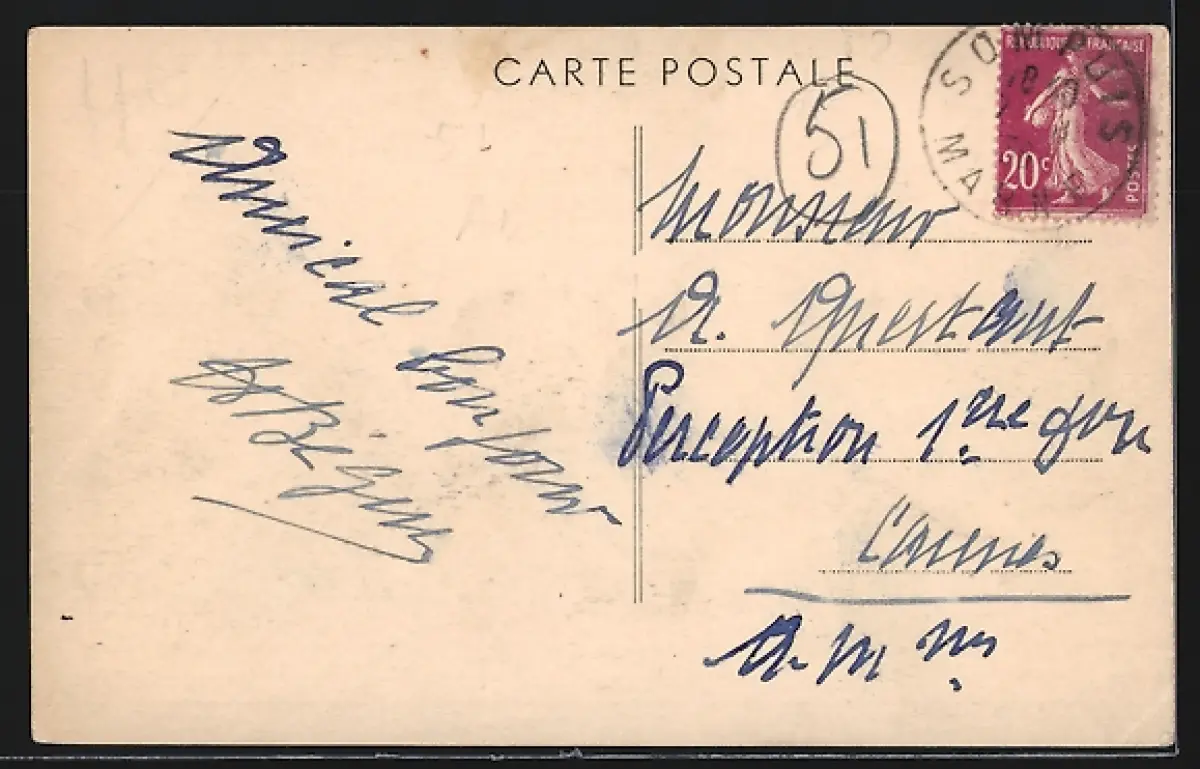 CARTE POSTALE
51
SOMPUIS
MARNE
REPUBLIQUE FRANÇAISE
20c
POSTES
Amical bonjour
Monsieur
A. Questaut
Perception 1ère
Cannes
A. M.